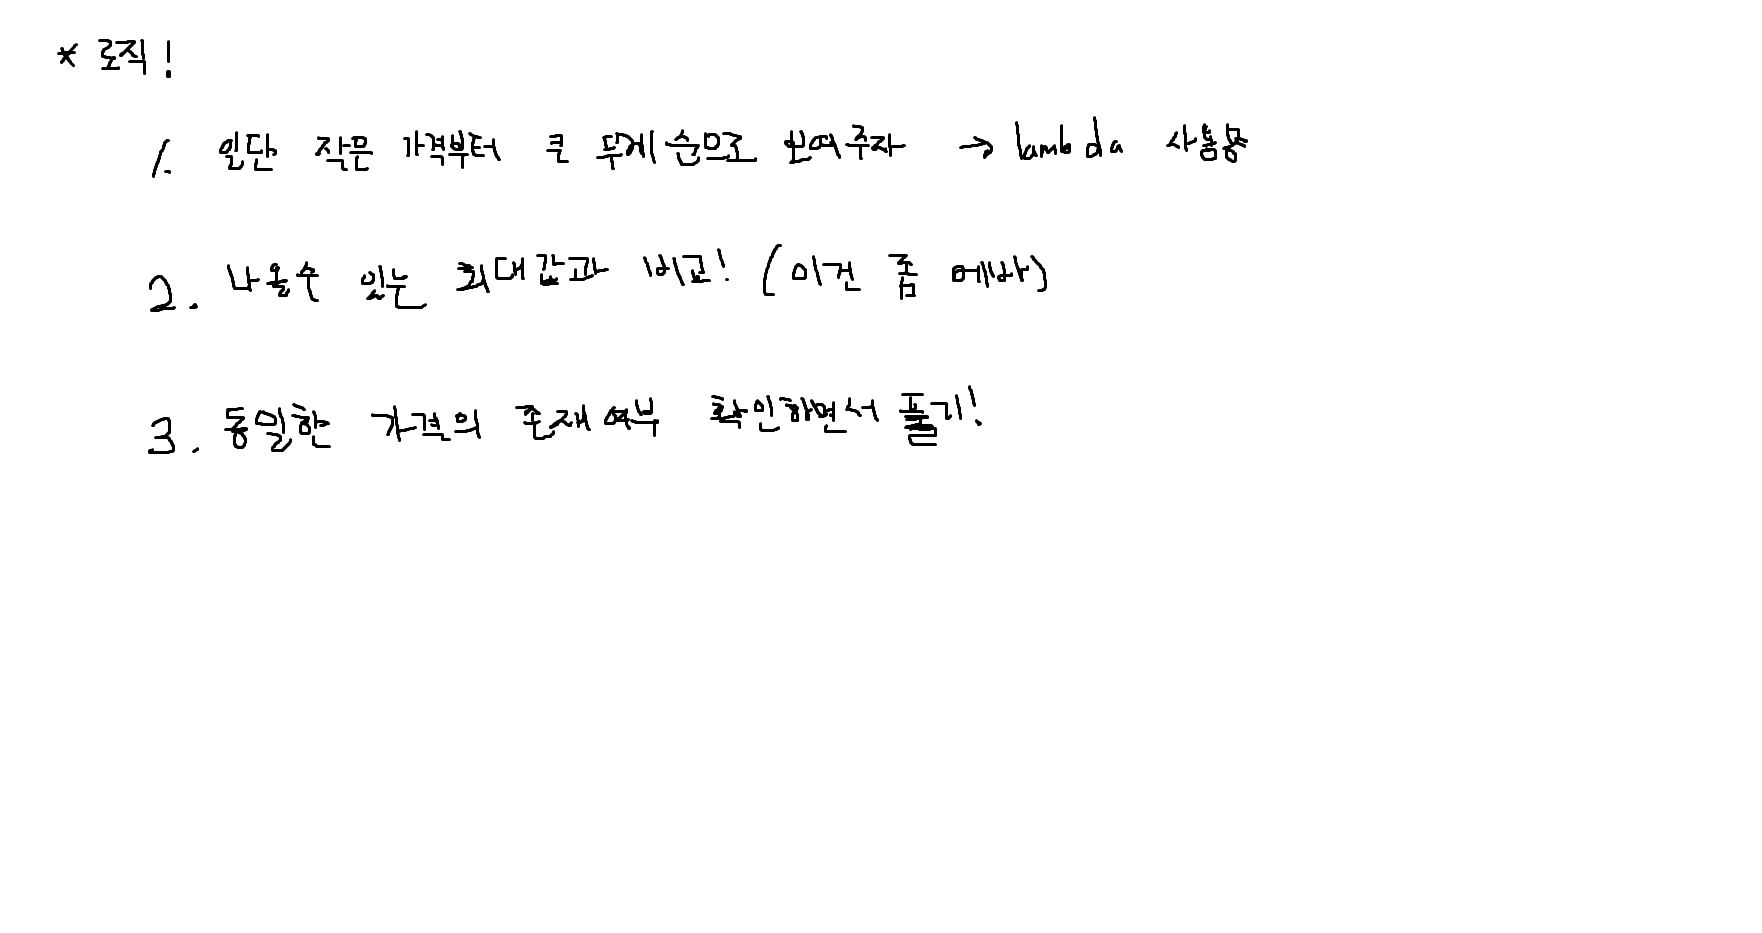 * 로직!
1. 일단 작은 가격부터 큰 무게순으로 보여주자 → lambda 사용
2. 나올수 있는 최대값과 비교! (이건 좀 에바)
3. 동일한 가격의 존재여부 확인하면서 풀기!